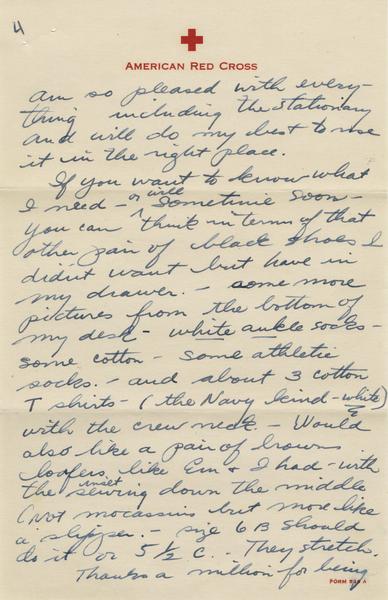 4
AMERICAN RED CROSS
am so pleased with every-
thing including the stationary
and will do my best to use
it in the right place.
If you want to know what
I need - or will sometime soon -
you can think in terms of that
other pair of black shoes I
didn't want but have in
my drawer. - some more
pictures from the bottom of
my desk - white ankle socks -
some cotton - some athletic
socks. - and about 3 cotton
T shirts - (the Navy kind - white)
with the crew neck. - Would
also like a pair of brown
loafers like Em & I had - with
the inset sewing down the middle
(not mocassins but more like
a slipper. - size 6 B should
do it or 5 1/2 C. - They stretch.
Thanks a million for being
FORM 539 A